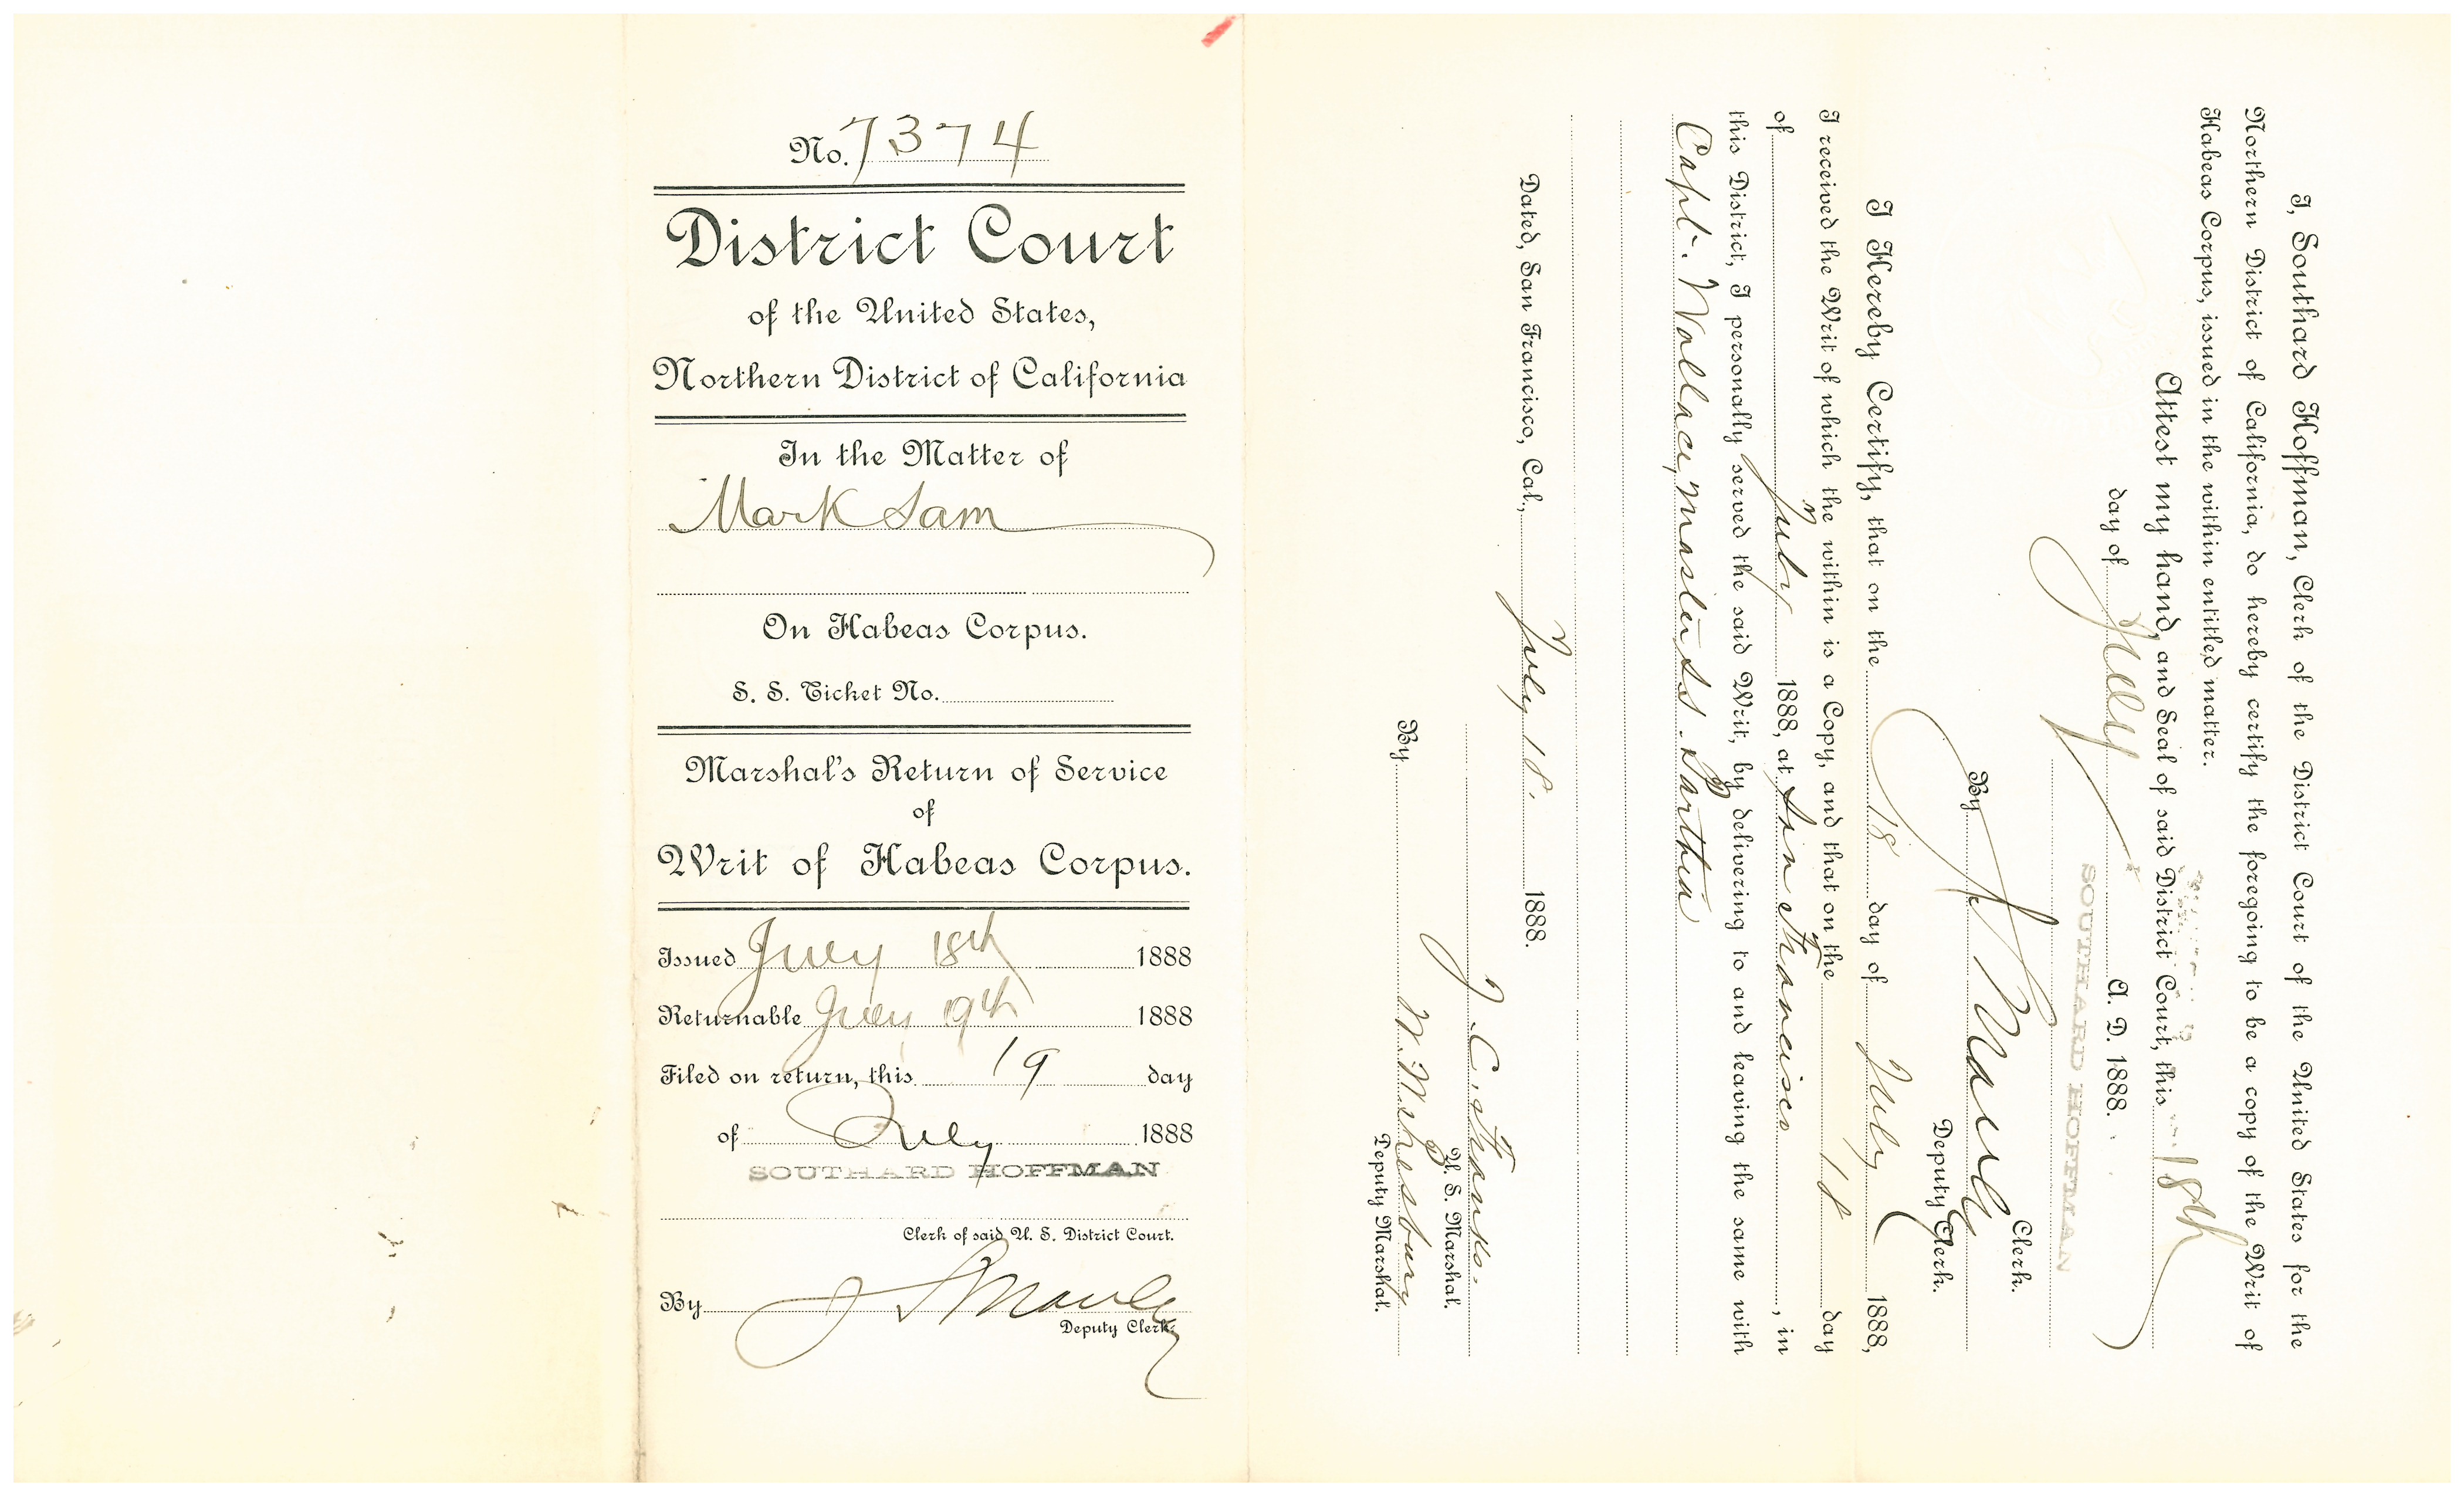 No. 7374
District Court
of the United States,
Northern District of California
In the Matter of
Mark Sam
On Habeas Corpus.
S. S. Ticket No.
Marshal's Return of Service
of
Writ of Habeas Corpus.
Issued July 18th 1888
Returnable July 19th 1888
Filed on return, this 19 day
of July 1888
SOUTHARD HOFFMAN
Clerk of said U. S. District Court.
By J S Manley
Deputy Clerk.
I, Southard Hoffman, Clerk of the District Court of the United States for the
Northern District of California, do hereby certify the foregoing to be a copy of the Writ of
Habeas Corpus, issued in the within entitled matter.
Attest my hand, and Seal of said District Court, this 18th
day of July A. D. 1888.
SOUTHARD HOFFMAN
Clerk.
By J S Manley
Deputy Clerk.
I Hereby Certify, that on the 18 day of July 1888,
I received the Writ of which the within is a Copy, and that on the 18 day
of July 1888, at San Francisco, in
this District, I personally served the said Writ, by delivering to and leaving the same with
Capt. Wallace, Master S.S. Parthia
Dated, San Francisco, Cal., July 18. 1888.
J. C. Franks.
U. S. Marshal.
By
Deputy Marshal.